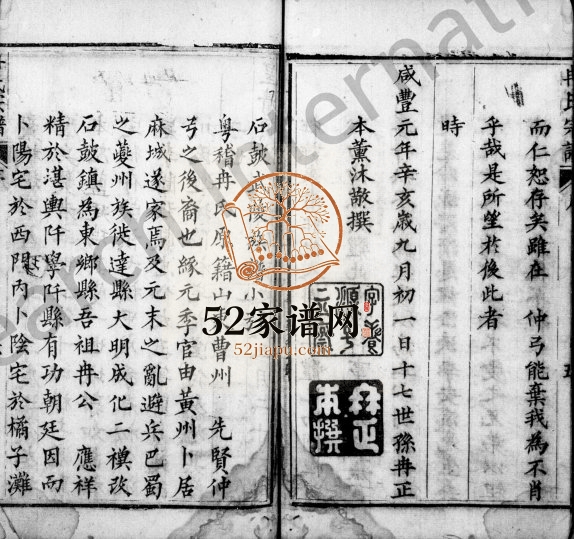 而仁恕存矣雖在 仲弓能棄我為不肖
乎哉是所望於後此者
時
咸豐元年辛亥歲九月初一日十七世孫冉正
本薰沐敬撰
冉正本撰
石鼓武陵
小
粵稽冉氏原籍山東曹州 先賢仲
弓之後裔也緣元季官由黃州卜居
麻城遂家焉及元末之亂避兵巴蜀
之夔州族徙達縣大明成化二模改
石鼓鎮為東鄉縣吾祖冉公 應祥
精於湛輿阡學阡縣有功朝廷因而
卜陽宅於西門內卜陰宅於橘子灘
冉氏宗譜
52家谱网
52jiapu.com